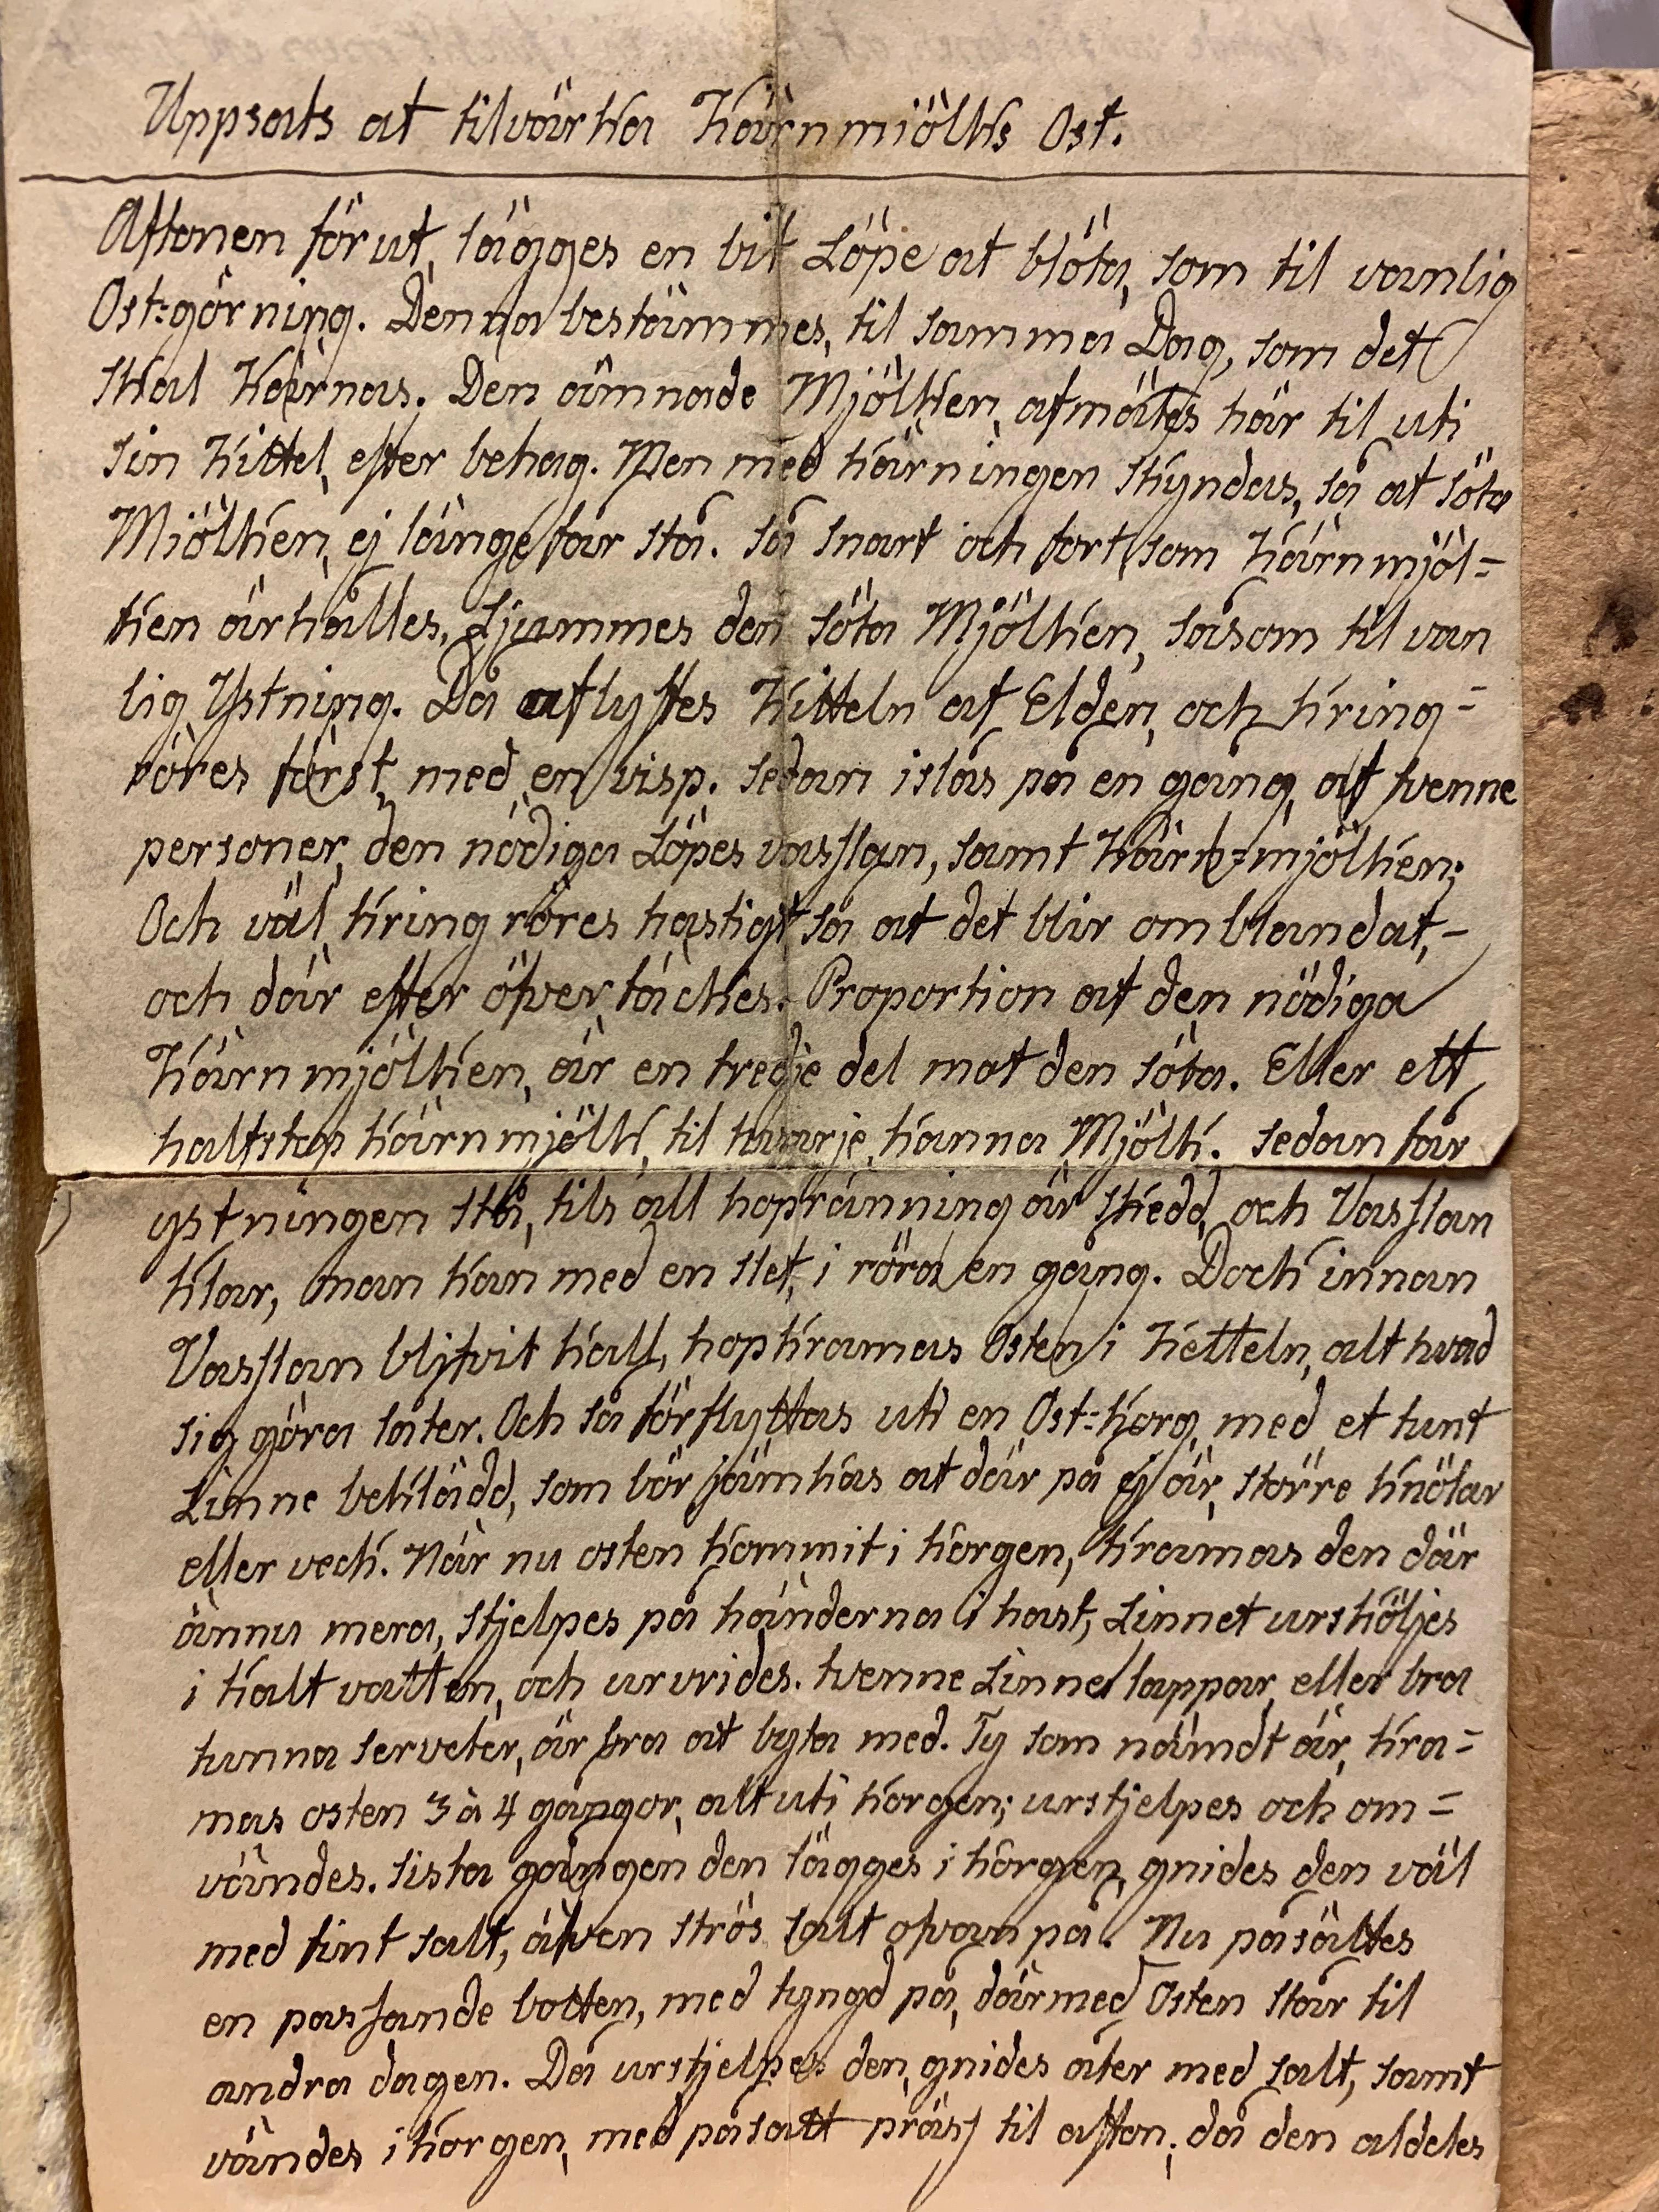 Uppsats at tilvärka Kärnmiölks Ost.
Aftonen förut, lägges en bit Löpe at blöta, som til vanlig
Ost=görning. Denna bestämmes, til samma Dag, som det
skal Kärnas. Den ämnade Mjölken, afmätes här til uti
sin Kittel, efter behag. Men med kärningen skyndas, så at söta
Miölken, ej länge får stå. så snart och fort som kärnmjöl=
ken ärhålles, Ljummes den söta Mjölken, såsom til van
lig Ystning. Då aflyftes Kitteln af Elden, och kring=
röres först, med en visp. sedan islås på en gång, af tvenne
personer, den nödiga Löpes vasslan, samt Kärn=mjölken;
Och väl kringröres hastigt så at det blir omblandat,-
och där efter öfver täckes. Proportion af den nödiga
Kärnmjölken, är en tredje del mot den söta. Eller ett
halfstop kärnmjölk, til hvarje kanna Mjölk. sedan får
ystningen stå, tils all hopränning är skedd, och Vasslan
klar, man kan med en slef, i röra en gång. Dock innan
Vasslan blifvit kall, hopkramas Osten i Ketteln, alt hvad
sig göra låter. Och så förflyttas uti en Ost=korg, med et tunt
Linne beklädd, som bör jämkas at där på ej är, större knölar
eller veck. När nu osten kommit i korgen, kramas den där
ännu mera, stjelpes på händerna i hast, Linnet ursköljes
i kalt vatten, och urvrides. tvenne Linne lappar, eller bra
tunna serveter, är bra at byta med. Ty som nämdt är, kra=
mas osten 3 à 4 gångor, alt uti korgen; urstjelpes och om=
vändes. sista gången den lägges i korgen, gnides den väl
med fint salt, äfven strös salt ofvan på. Nu påsättes
en passande botten, med tyngd på, därmed Osten står til
andra dagen. Då urstjelpes den, gnides åter med salt, samt
vändes i korgen, med påsatt präss til afton; då den aldeles